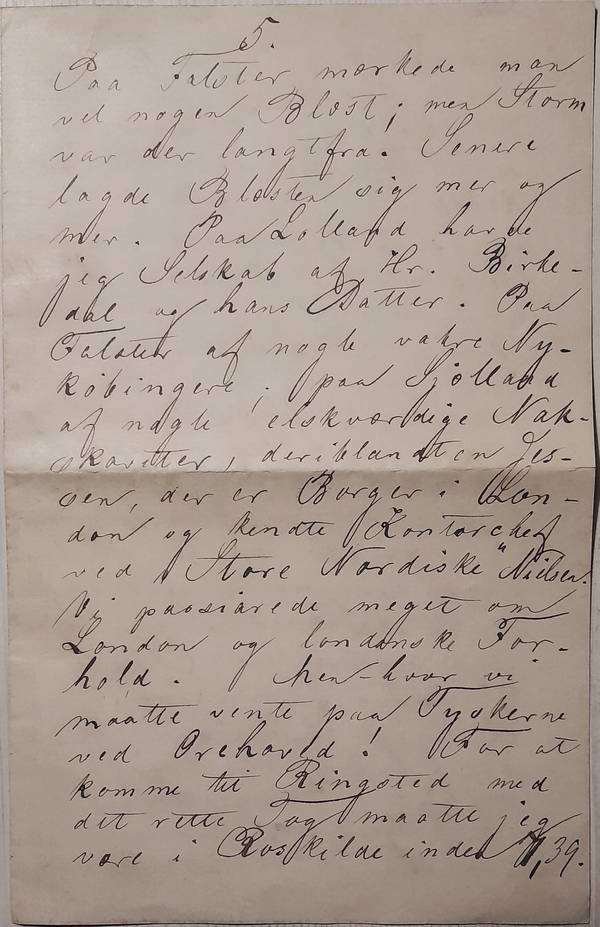 5.
Paa Falster mærkede man
vel nogen Blæst; men Storm
var der langtfra. Senere
lagde Blæsten sig mer og
mer. Paa Lolland havde
jeg Selskab af Hr. Birke-
dal og hans Datter. Paa
Falster af nogle vakre Ny-
købingere; paa Sjælland
af nogle elskværdige Nak-
skovitter, deriblandt en Jes-
sen, der er Borger i Lon-
don og kendte Kontorchef
ved "Store Nordiske" Nielsen.
Vi passiarede meget om
London og londonske For-
hold. Men - hvor vi
maatte vente paa Tyskerne
ved Orehoved! For at
komme til Ringsted med
det rette Tog maatte jeg
være i Roskilde inden 7,39.